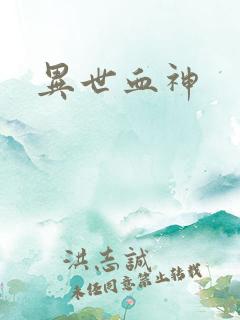 異世血神
洪志誠
未經同意禁止轉載